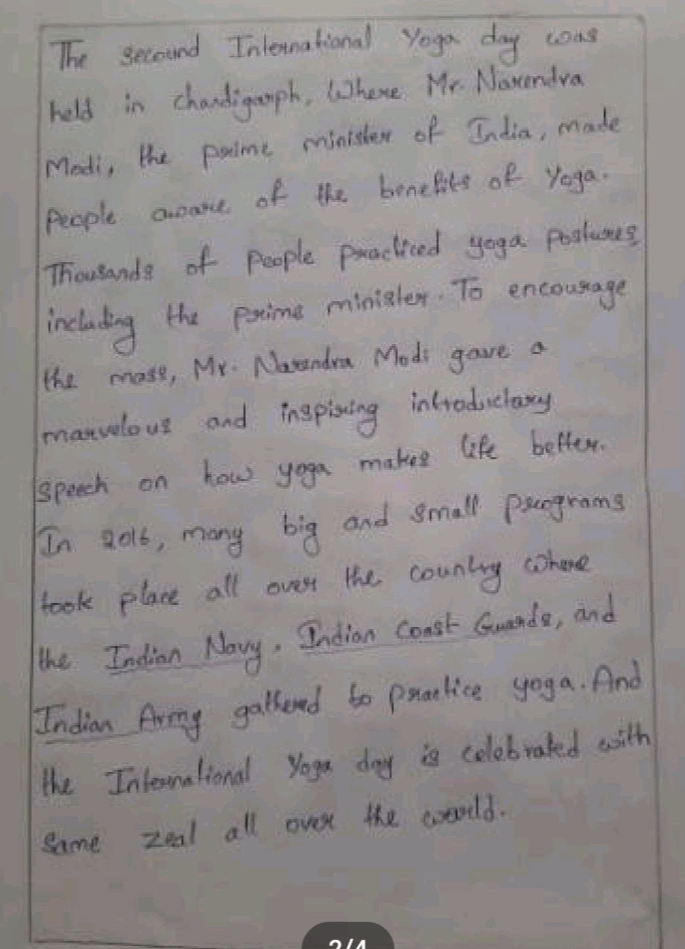 The secound International Yoga day was
held in chandigarph, Where Mr. Narendra
Modi, the prime minister of India, made
People aware of the benefits of Yoga.
Thousands of People practiced yoga postures
including the prime minister. To encourage
the mass, Mr. Narendra Modi gave a
marvelous and inspiring introductary
speech on how yoga makes life better.
In 2016, many big and small programs
took place all over the country where
the Indian Navy, Indian Coast Guards, and
Indian Army gathered to practice yoga. And
the International Yoga day is celebrated with
same zeal all over the world.
2/4